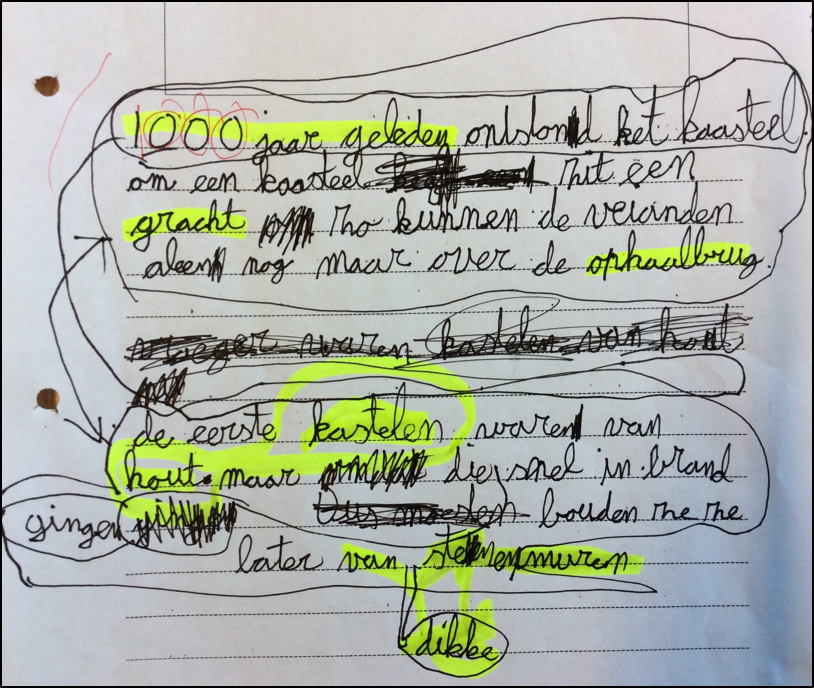 1000 jaar geleden ontstond het kaasteel
om een kaasteel mit een
gracht zo kunnen de veianden
aleen nog maar over de ophaalbrug.
vroeger waren kastelen van hout
de eerste kastelen waren van
hout. maar die snel in brand
gingen
dus moesten bouden me me
later van stenen muren
dikke